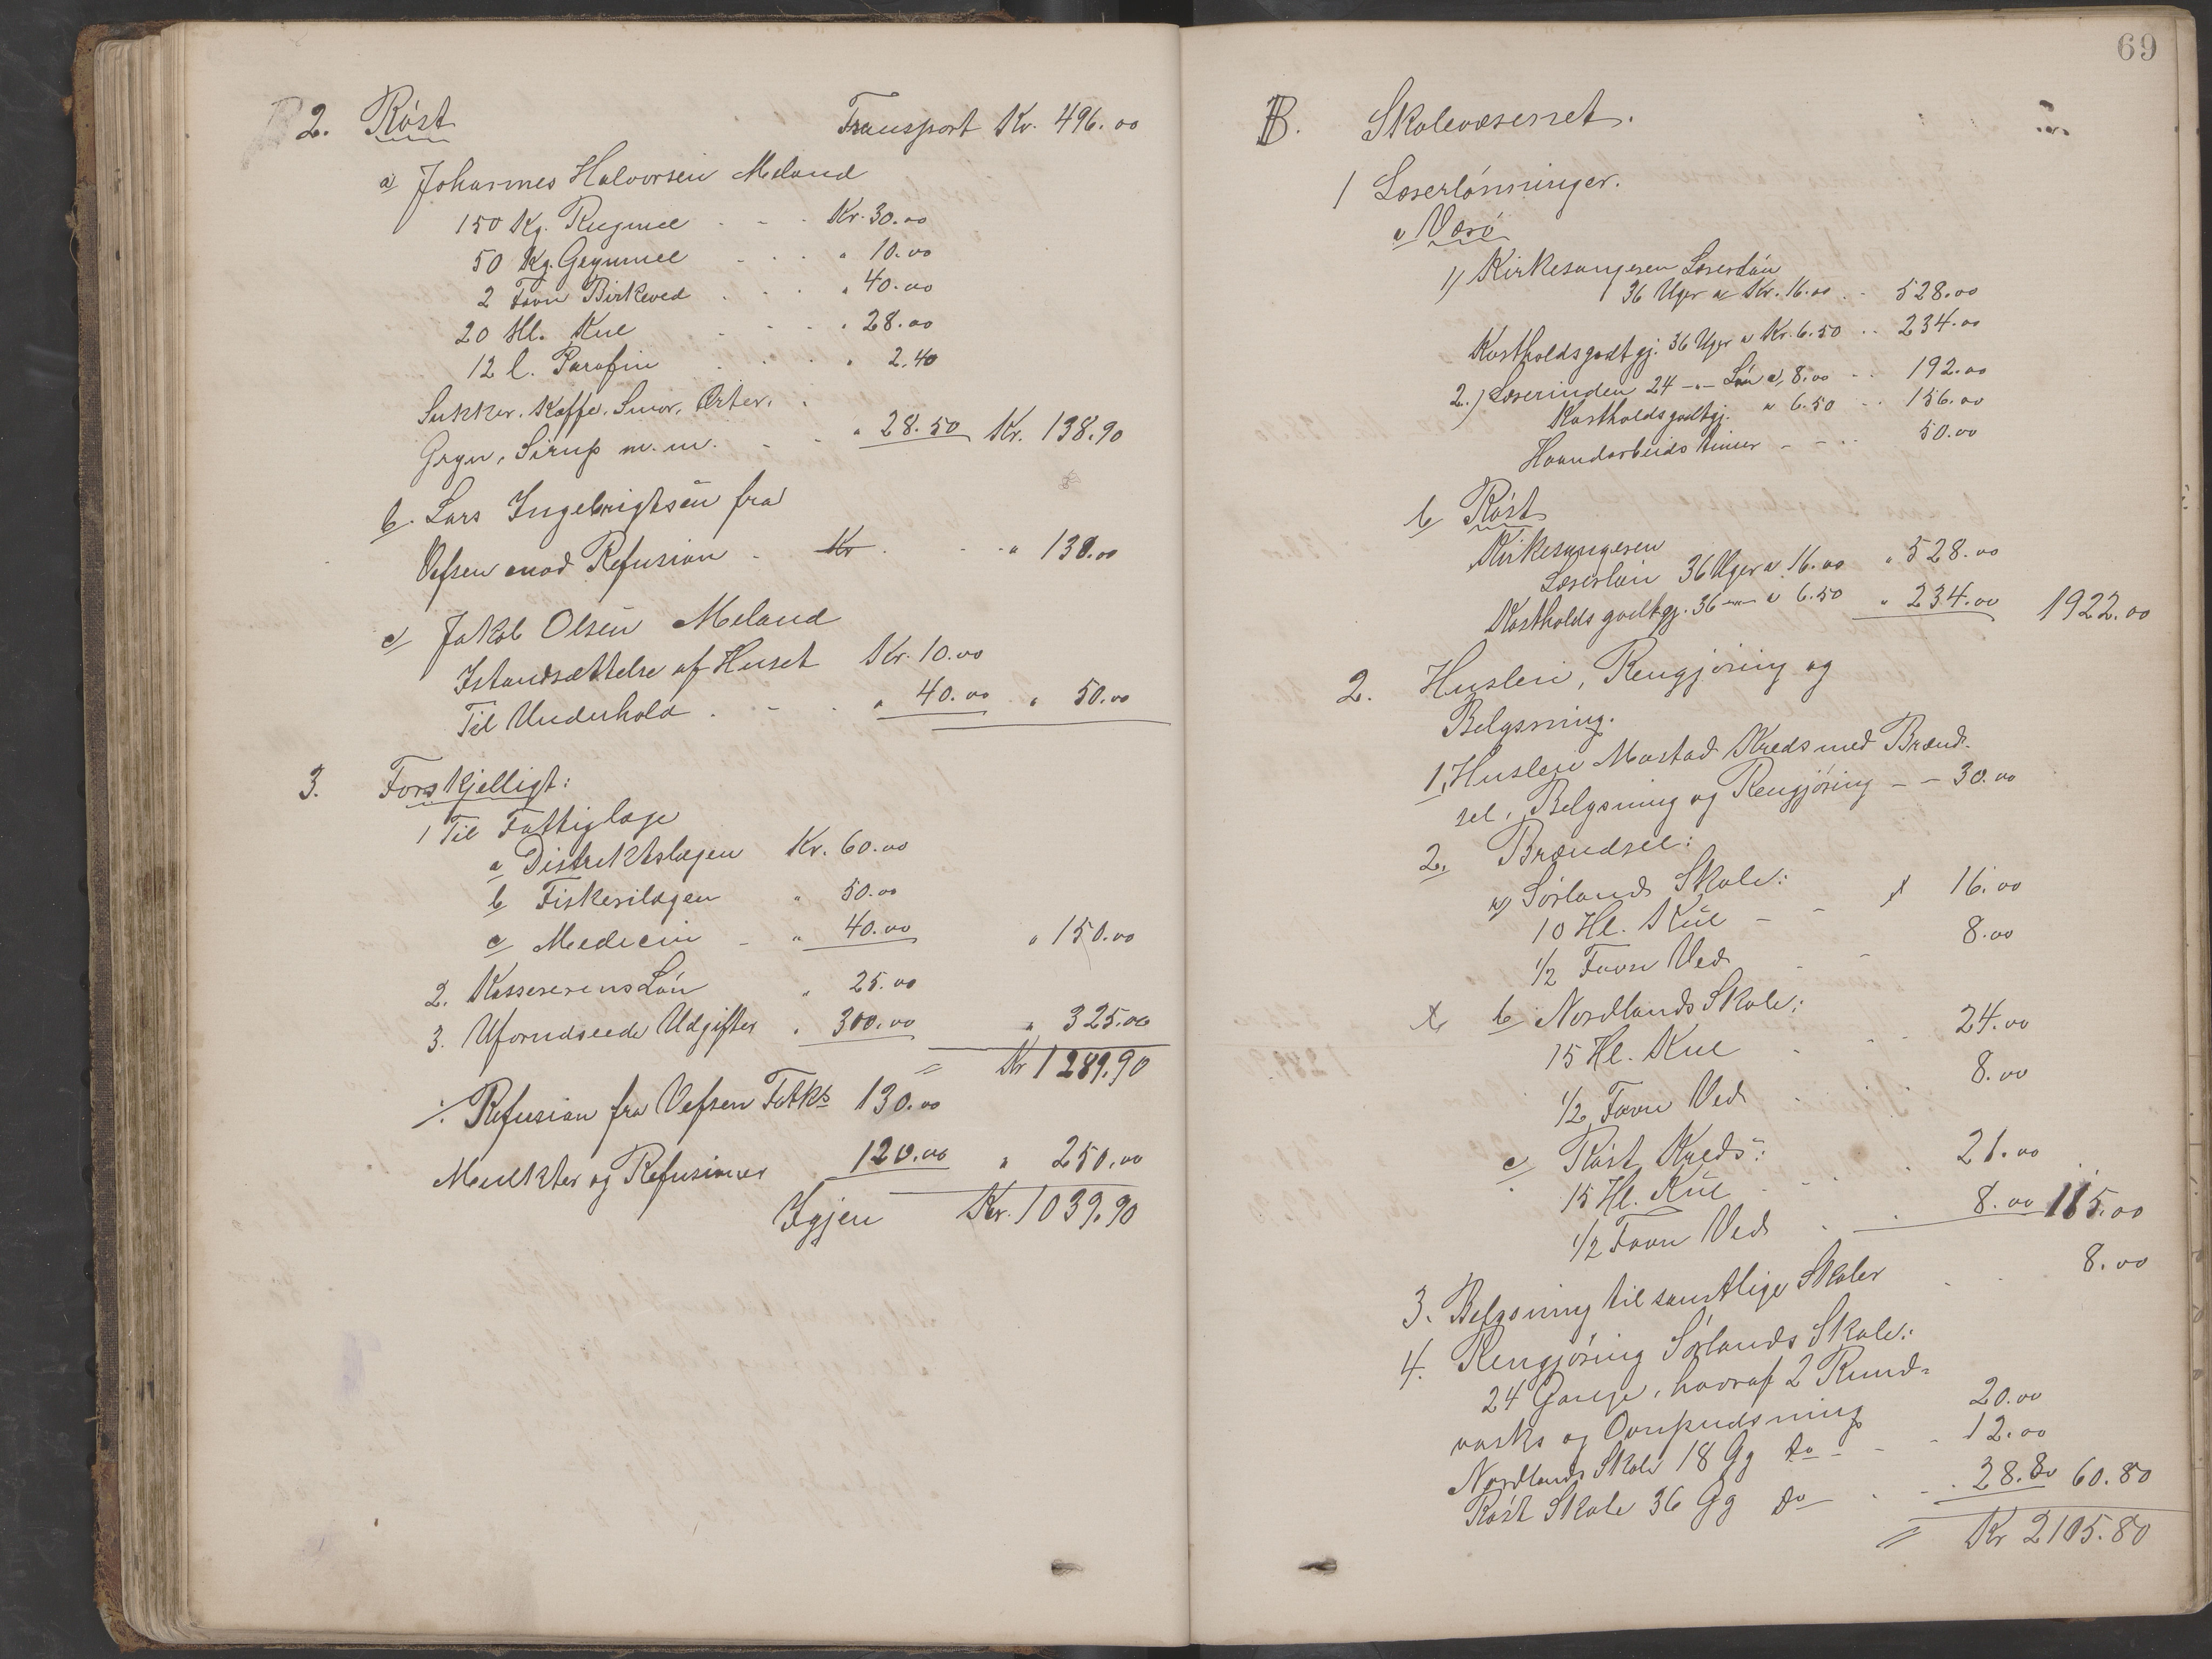 2. Röst Transport Kr. 496.00
a) Johannes Halvorsen Meland
150 Kg. Rugmel - - Kr. 30.00
50 Kg. Grynmel - . . " 10.00
2 Favn Birkeved . . . " 40.00
20 Hl. Kul - - - " 28.00
12 l. Parafin . . . " 2.40
Sukker, Kaffe, Smør, Erter,
Gryn, Sirup m. m. - - " 28.50 Kr. 138.90
b. Lars Ingebrigtsen fra
Vefsen mod Refusion - Kr . - - " 130.00
c) Jakob Olsen Meland
Istandsættelse af Huset Kr. 10.00
Til Underhold . - . " 40.00 " 50.00
3. Forskjelligt:
1 Til Fattiglæge
a Distriktslægen Kr. 60.00
b Fiskerilægen " 50.00
c Medicin - " 40.00 " 150.00
2. Kassererens Løn " 25.00
3. Uforudseede Udgifter " 300.00 " 325.00
= Kr 1289.90
÷ Refusion fra Vefsen Ftks 130.00
Mulkter og Refusioner 120.00 " 250.00
Igjen Kr. 1039.90
69
B. Skolevæsenet.
1 Læserlønninger.
a Værø
1) Kirkesangeren Læserløn
36 Uger a Kr. 16.00 . - 528.00
Kostholdsgodtgj. 36 Uger a Kr. 6.50 . . 234.00
2.) Læserinden 24 -"- Løn a 8.00 - - 192.00
Kostholdsgodtgj. a 6.50 - - 156.00
Haandarbeids timer - - - 50.00
b Röst
Kirkesangeren
Læserløn 36 Uger a 16.00 " 528.00
Kostholds godtgj. 36 -"- a 6.50 " 234.00 1922.00
2. Husleie, Rengjøring og
Belysning.
1, Husleie Mostad Kreds med Brænd-
sel, Belysning og Rengjøring - - 30.00
2. Brændsel:
a) Sørlands Skole:
10 Hl. Kul - - 16.00
1/2 Favn Ved - - 8.00
b Nordlands Skole:
15 Hl. Kul - - - 24.00
1/2 Favn Ved . . . 8.00
c Röst Kreds:
15 Hl. Kul - - - 21.00
1/2 Favn Ved . . 8.00 115.00
3. Belysning til samtlige Skoler . . 8.00
4. Rengjøring Sørlands Skole:
24 Gange, hvoraf 2 Rund-
vask og Ovnpudsning 20.00
Nordlands Skole 18 Gg do - - - 12.00
Röst Skole 36 Gg do - . - . 28.80 60.80
= Kr 2105.80